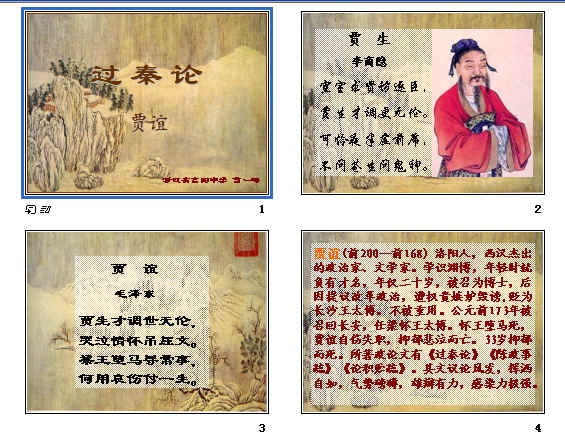 过秦论
贾谊
1
贾 生
李商隐
宣室求贤访逐臣，
贾生才调更无伦。
可怜夜半虚前席，
不问苍生问鬼神。
2
贾 谊
毛泽东
贾生才调世无伦，
哭泣情怀吊屈文。
梁王堕马寻常事，
何用哀伤付一生。
3
贾谊(前200—前168) 洛阳人，西汉杰出
的政治家、文学家。学识渊博，年轻时就
负有才名，年仅二十岁，被召为博士，后
因提议改革政治，遭权贵嫉妒毁谤，贬为
长沙王太傅，不被重用。公元前173年被
召回长安，任梁怀王太傅。怀王堕马死，
贾谊自伤失职，抑郁悲泣而亡。33岁抑郁
而死。所著政论文有《过秦论》《陈政事
疏》《论积贮疏》。其文议论风发，挥洒
自如，气势磅礴，雄辩有力，感染力极强。
4